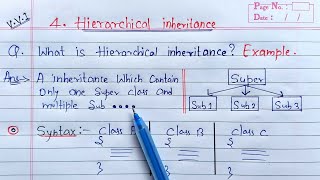 V.V.I
Page No.:
Date: / /
4. Hierarchical inheritance
Q. What is Hierarchical inheritance? Example.
Ans→ A inheritance Which Contain
Only one Super class and
multiple Sub ....
Super
Sub1 Sub2 Sub3
Syntax:- Class A Class B class C
{ { {
} } }